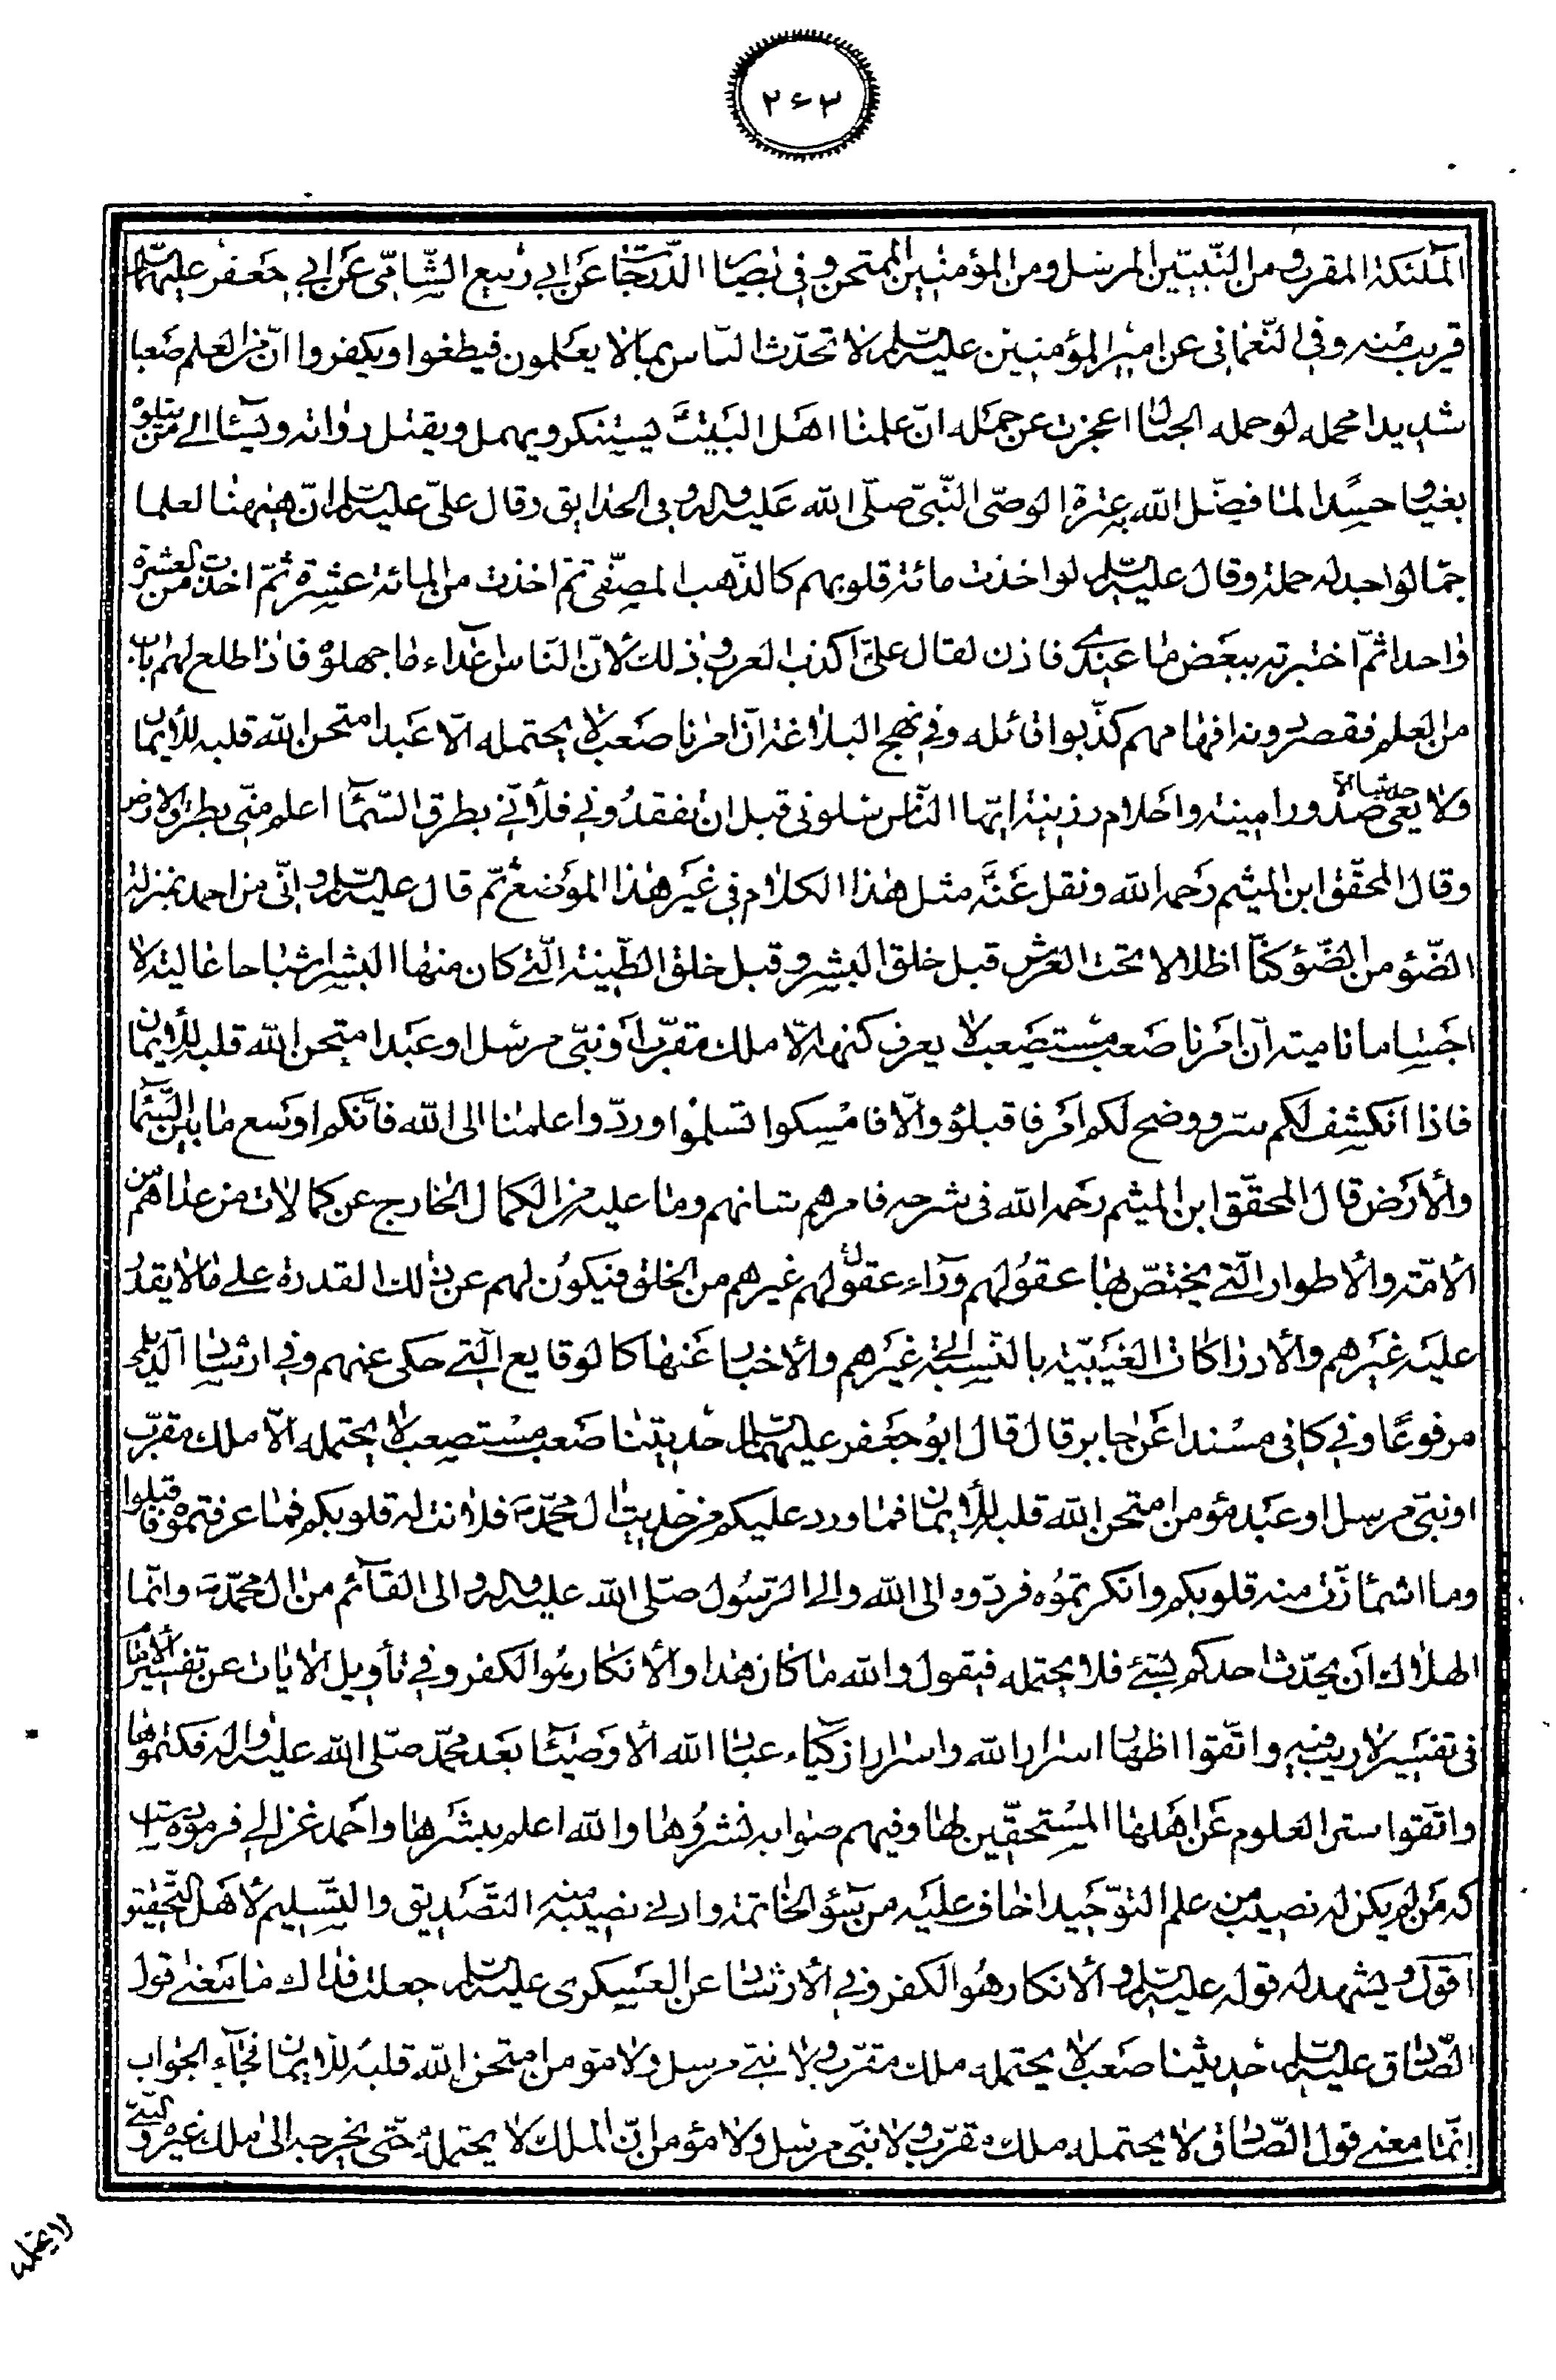 ۲۶۳
الملئكة المقرب ومن النبيين المرسل ومن المؤمنين الممتحن وفى بصائر الدرجات عن ابى ربيع الشامى عن ابى جعفر عليهما السلام
قريب منه وفى النعمانى عن امير المؤمنين عليه السلام لا تحدث الناس بما لا يعلمون فيطغوا ويكفروا ان من العلم صعبا
شديدا محمله لو حمله الجبال عجزت عن حمله ان علمنا اهل البيت يستنكر ويهمل ويقتل رواته ويساء الى من يتلوه
بغيا وحسدا لما فضل الله به عترة الوصى النبى صلى الله عليه وآله وفى الحدايق وقال على عليه السلام ان هيهنا لعلما
جما لو اجد له حملة وقال عليه السلام لو اخذت مائة قلوبهم كالذهب المصفى ثم اخذت من المائة عشرة ثم اخذت من العشرة
واحدا ثم اختبرته ببعض ما عندى فاذن لقال على اكذب العرب وذلك لان الناس اعداء ما جهلوه فاذا طلع لهم باب
من العلم فقصر دونه افهامهم كذبوا قائله وفى نهج البلاغة ان امرنا صعب لا يحتمله الا عبد امتحن الله قلبه للايمان
ولا يعى حديثنا الا صدور امينة واحلام رزينة ايها الناس سلونى قبل ان تفقدونى فلانى بطرق السماء اعلم منى بطرق الارض
وقال المحقق ابن الميثم رحمه الله ونقل عنه مثل هذا الكلام فى غير هذا الموضع ثم قال عليه السلام وانى من احمد بمنزلة
الضوء من الضوء كنا اظلالا تحت العرش قبل خلق البشر وقبل خلق الطينة التى كان منها البشر اشباحا عالية لا
اجساما نامية ان امرنا صعب مستصعب لا يعرف كنهه الا ملك مقرب او نبى مرسل او عبد امتحن الله قلبه للايمان
فاذا انكشف لكم سر ووضح لكم امر فاقبلوه والا فامسكوا تسلموا وردوا علمنا الى الله فانكم اوسع ما بين السماء
والارض قال المحقق ابن الميثم رحمه الله فى شرحه فامرهم شانهم وما عليه من الكمال الخارج عن كمالات من عداهم من
الامة والاطوار التى يختص بها عقولهم وراء عقول غيرهم من الخلق فيكون لهم عن ذلك القدرة على ما لا يقدر
عليه غيرهم والادراكات الغيبية بالنسبة الى غيرهم والاخبار عنها كالوقايع التى حكى عنهم وفى ارشاد الديلمى
مرفوعا وفى كافى مسندا عن جابر قال قال ابو جعفر عليهما السلام حديثنا صعب مستصعب لا يحتمله الا ملك مقرب
او نبى مرسل او عبد مؤمن امتحن الله قلبه للايمان فما ورد عليكم من حديث ال محمد ص فلانت له قلوبكم فما عرفتموه فاقبلوا
وما اشمأزت منه قلوبكم وانكرتموه فردوه الى الله والى الرسول صلى الله عليه وآله والى القائم من ال محمد ص وانما
الهلاك ان يحدث احدكم بشئ فلا يحتمله فيقول والله ما كان هذا والانكار هو الكفر وفى تأويل الايات عن تفسير الامام
فى تفسير لا ريب فيه واتقوا اظهار اسرار الله واسرار ازكياء عباد الله الاوصياء بعد محمد صلى الله عليه واله فكتموها
واتقوا ستر العلوم عن اهلها المستحقين لها وفيهم صوابه فنشروها والله اعلم بنشرها واحمد غزالى فرموده
كه من لم يكن له نصيب من علم التوحيد اخاف عليه من سوء الخاتمة وادنى نصيب منه التصديق والتسليم لاهل التحقيق
اقول ويشهد له قوله عليه السلام والانكار هو الكفر وفى الارشاد عن العسكرى عليه السلام جعلت فداك ما معنى قول
الصادق عليه السلام حديثنا صعب لا يحتمله ملك مقرب ولا نبى مرسل ولا مؤمن امتحن الله قلبه للايمان فجاء الجواب
انما معنى قول الصادق لا يحتمله ملك مقرب ولا نبى مرسل ولا مؤمن ان الملك لا يحتمله حتى يخرجه الى ملك غيره والنبى
لا يحتمله